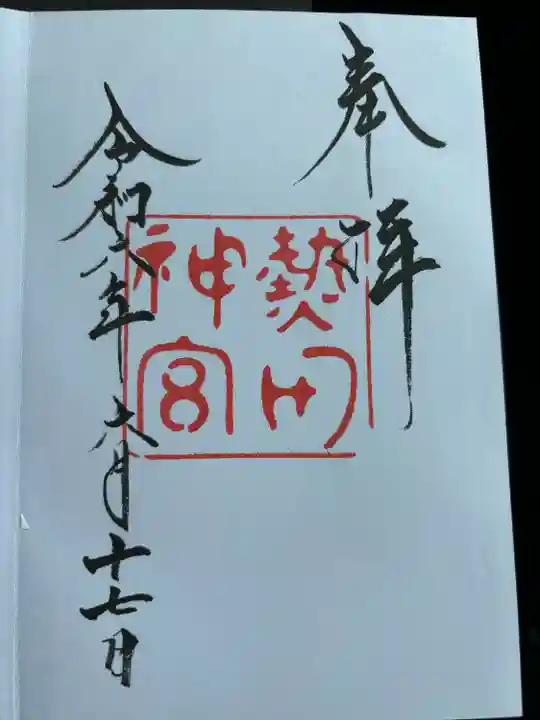 奉拝
熱田
神宮
令和六年六月十七日